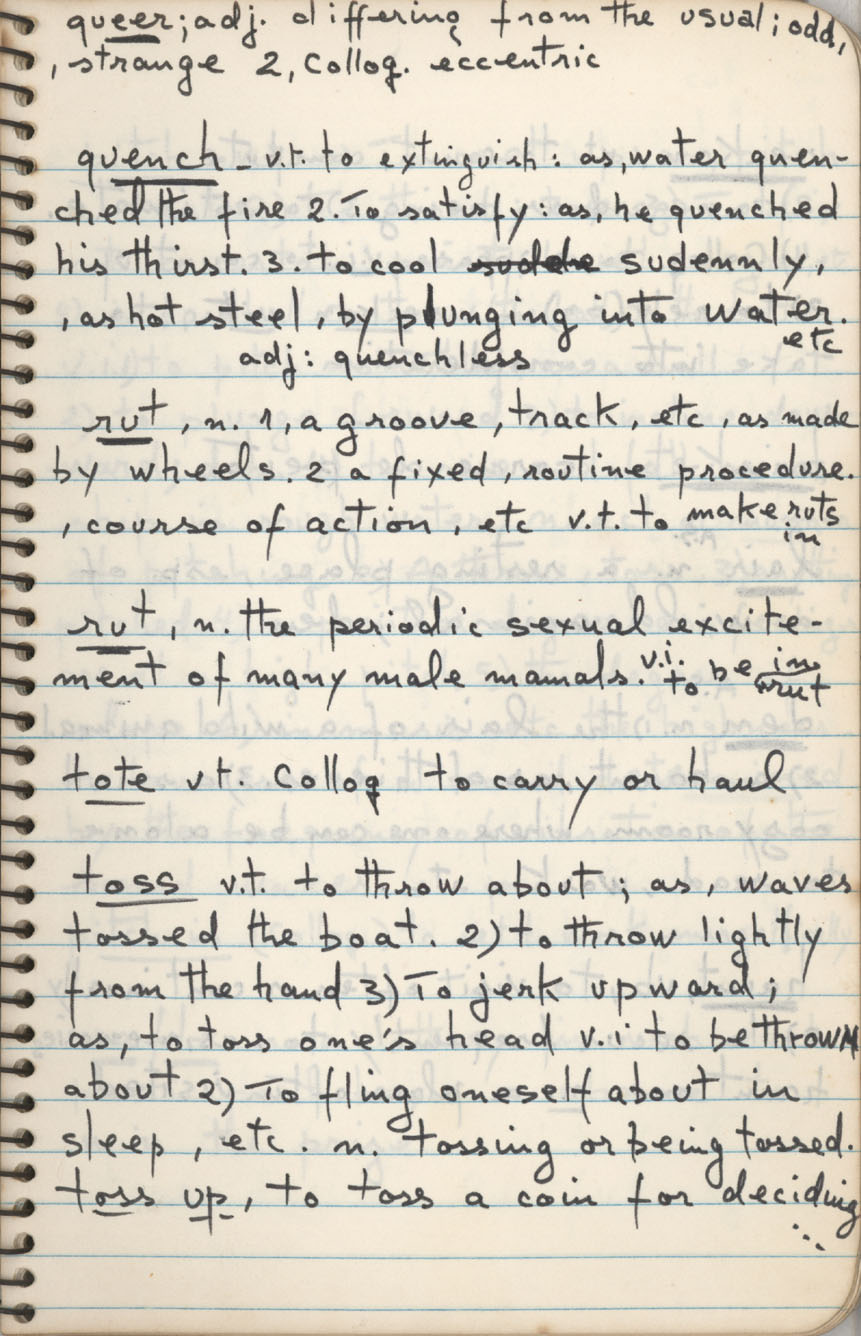 queer; adj. differing from the usual; odd,
, strange 2, Colloq. eccentric
quench - v.t. to extinguish: as, water quen-
ched the fire 2. To satisfy: as, he quenched
his thirst. 3. to cool sudennly,
, as hot steel, by plunging into water.
etc
adj: quenchless
rut, n. 1, a groove, track, etc, as made
by wheels. 2 a fixed, routine procedure.
, course of action, etc v.t. to make ruts
in
rut, n. the periodic sexual excite-
ment of many male mamals. v.i. to be in
rut
tote vt. Colloq to carry or haul
toss v.t. to throw about; as, waves
tossed the boat. 2) to throw lightly
from the hand 3) To jerk upward;
as, to toss one's head v.i to be thrown
about 2) To fling oneself about in
sleep, etc. n. tossing or being tossed.
toss up, to toss a coin for deciding
...